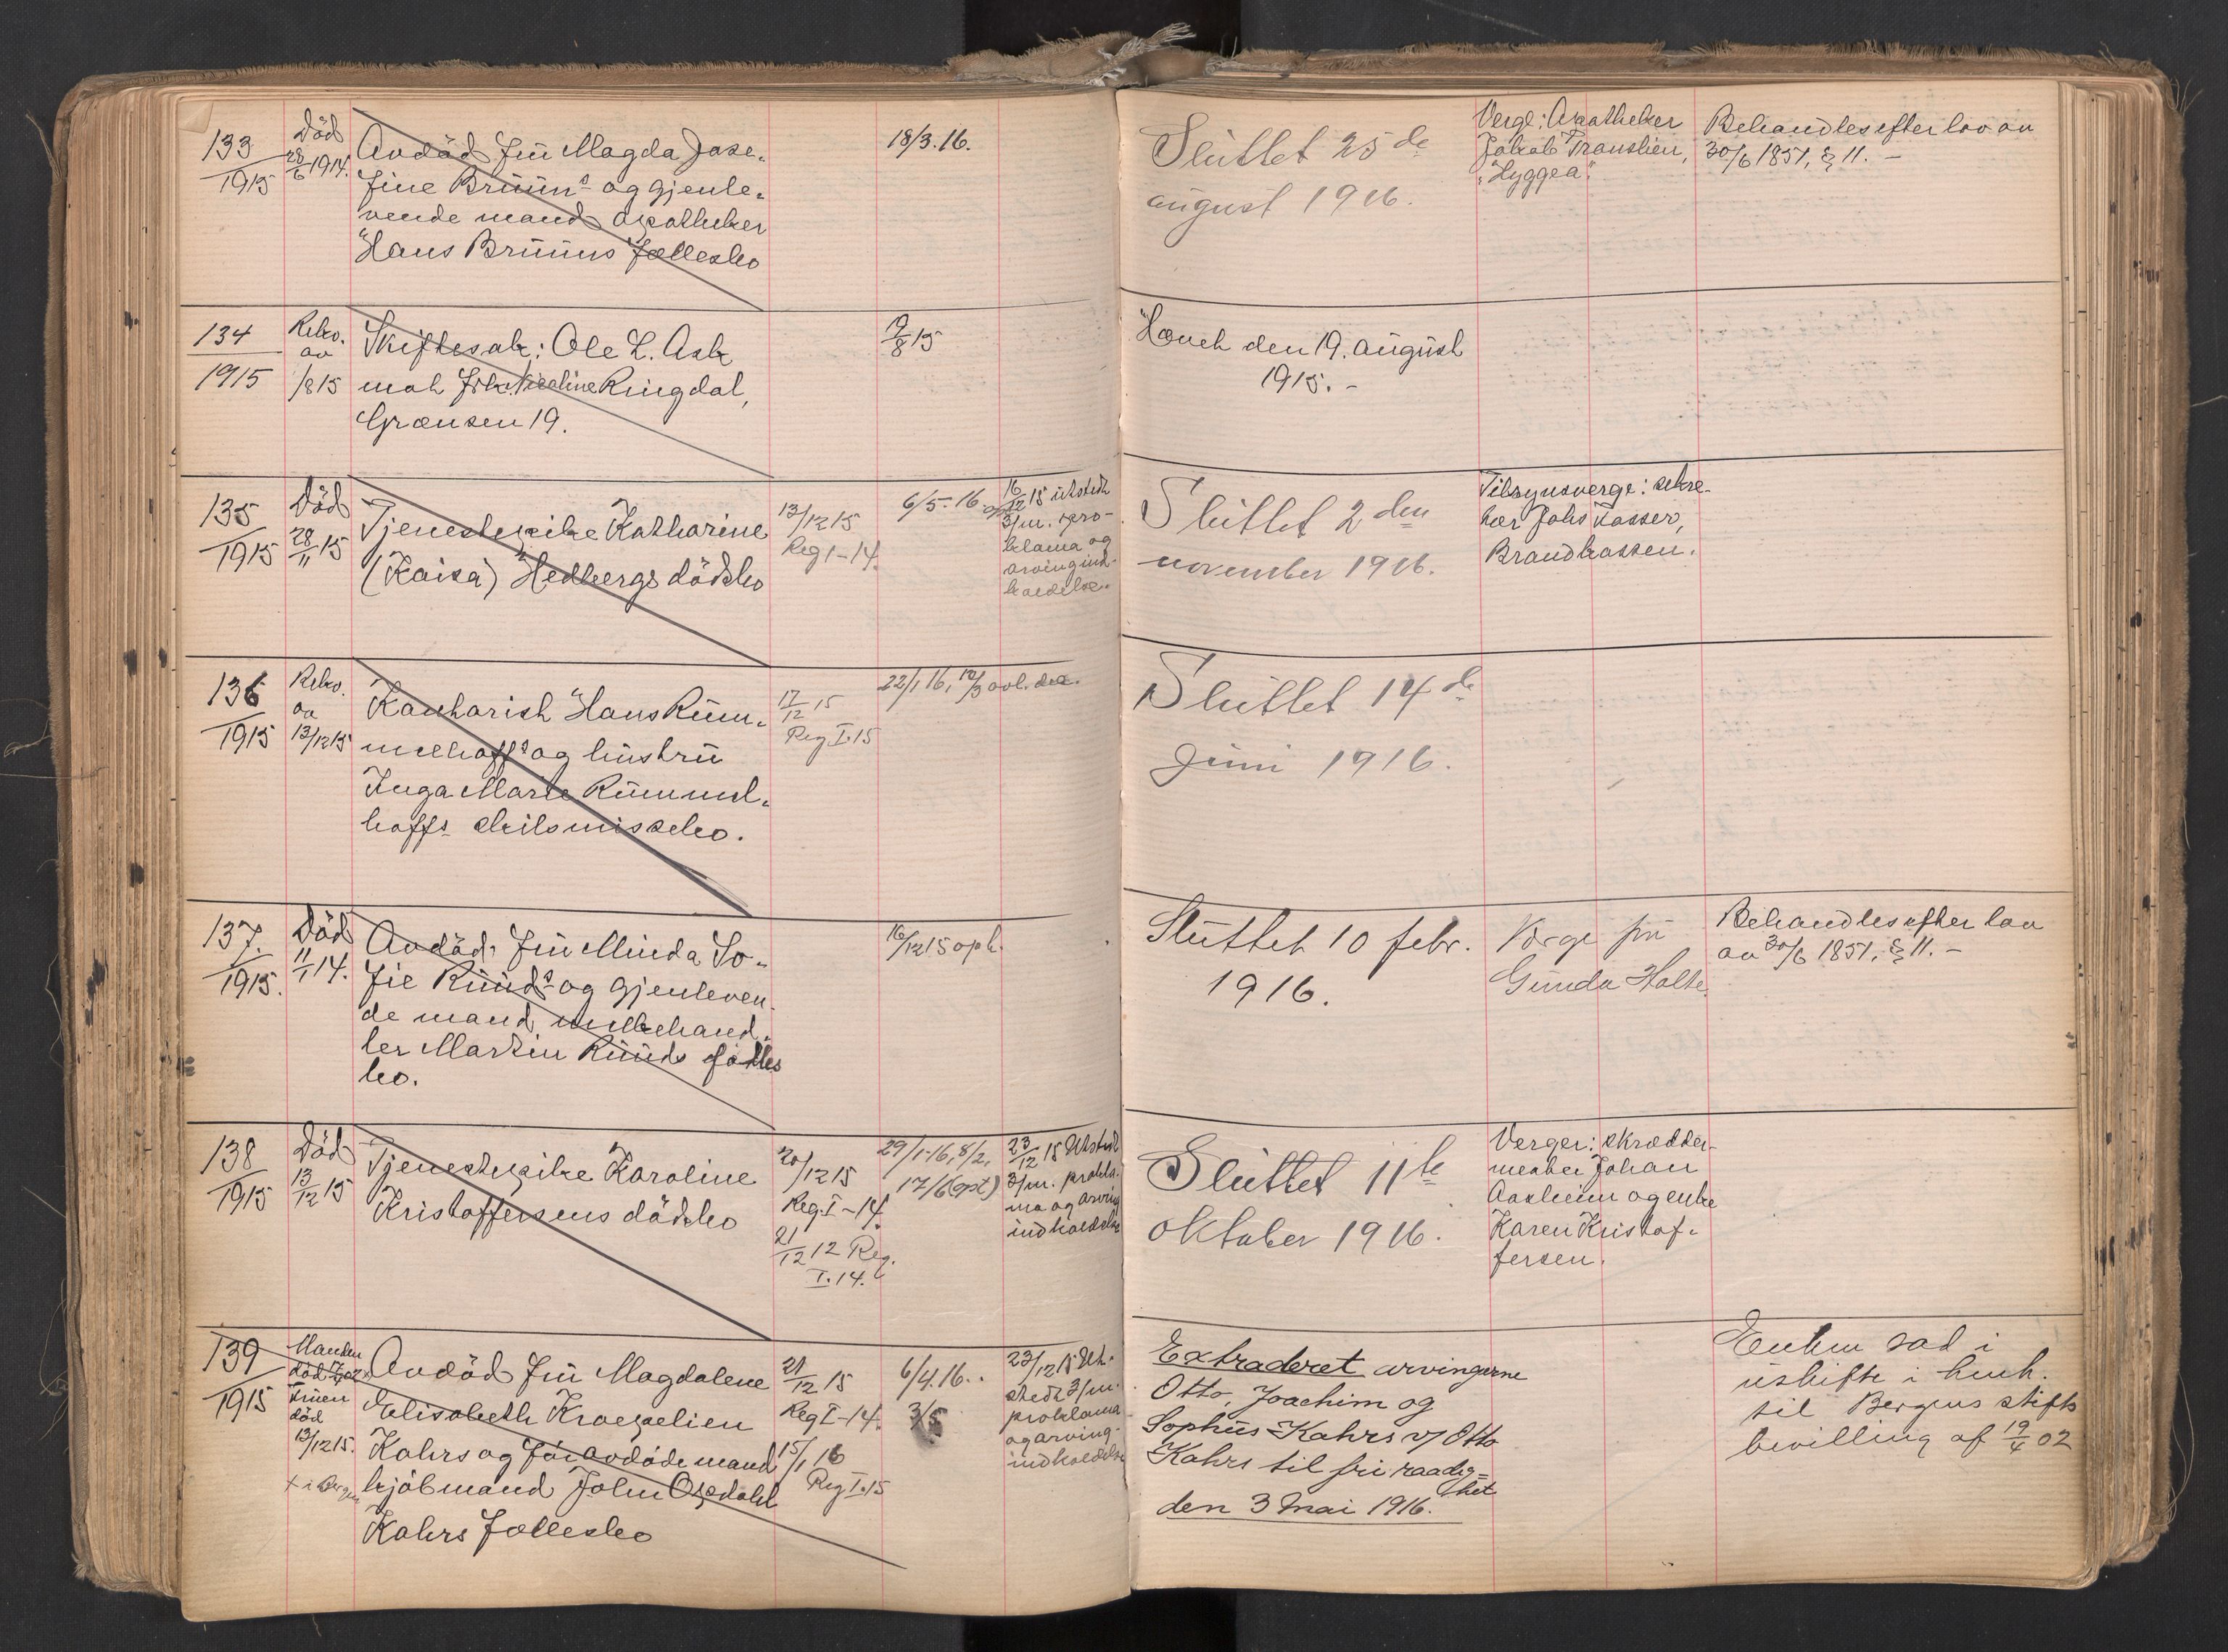 133
1915
Död
28/6 1914.
Avdöd Fru Magda Jose-
fine Bruuns og gjenle-
vende mand apotheker
Hans Bruuns fællesbo
18/3.16.
Sluttet 25de
august 1916.
Verge: Apotheker
Jakob
"Hyggea".
Behandles efter lov av
30/6 1851, § 11. -
134
1915
Rekv.
av
/8 15
Skiftesak: Ole L. Ask
mot Frk. Nicoline Ringdal,
Grænsen 19.
9/8 15
Hævet den 19. august
1915. -
135
1915
Död
28/11 15
Tjenestepike Katharine
(Kaisa) Hedbergs dödsbo
13/12 15
Reg I-14.
6/5-16
16/12 15 utstedt
3/m. pro-
klama og
arvingind-
kaldelse.
Sluttet 2den
november 1916.
Tilsynsverge: sekre-
tær Johs Kasser,
Brandkassen.
136
1915
Rekv.
av
13/12 15
Kaptein Hans Rum-
melhoffs og hustru
Inga Marie Rummel-
hoffs skilsmissebo.
17/12 15
Reg I.15
22/1 16,
Sluttet 14de
Juni 1916.
137.
1915.
Död
11/1 14.
Avdöd Fru Minda So-
fie Ruuds og gjenleven-
de mand, melkehand-
ler Martin Ruuds fælles
bo.
16/12 15 opt.
Sluttet 10 febr.
1916.
Verge fru
Gunda Holte.
Behandles efter lov
av 30/6 1851, § 11. -
138
1915
Död
13/12 15
Tjenestepike Karoline
Kristoffersens dödsbo
20/12 15
Reg. I-14.
21/12 12 Reg.
I.14.
29/1-16, 8/2,
17/6 (opt)
23/12 15 Utstedt
3/m. prokla-
ma og arving
indkaldelse
Sluttet 11te
oktober 1916.
Verger: skrædder-
mester Johan
Aasheim og enke
Karen Kristof-
fersen.
139
1915
Manden
död
Fruen
död
13/12 15.
+ i Bergen
Avdöd Fru Magdalene
Elisabeth Kroepelien
Kahrs og för avdöde mand
kjöbmand John Opdahl
Kahrs fællesbo
21/12 15
Reg I-14.
15/1 16
Reg I.15
6/4.16.
3/5
23/12 15 Ut-
stedt 3/m.
proklama
og arving-
indkaldelse
Extraderet arvingerne
Otto, Joachim og
Sophus Kahrs v/ Otto
Kahrs til fri raadig-
het
den 3 Mai 1916.
Enken sad i
uskifte i henh.
til Bergens stifts
bevilling af 19/4 02